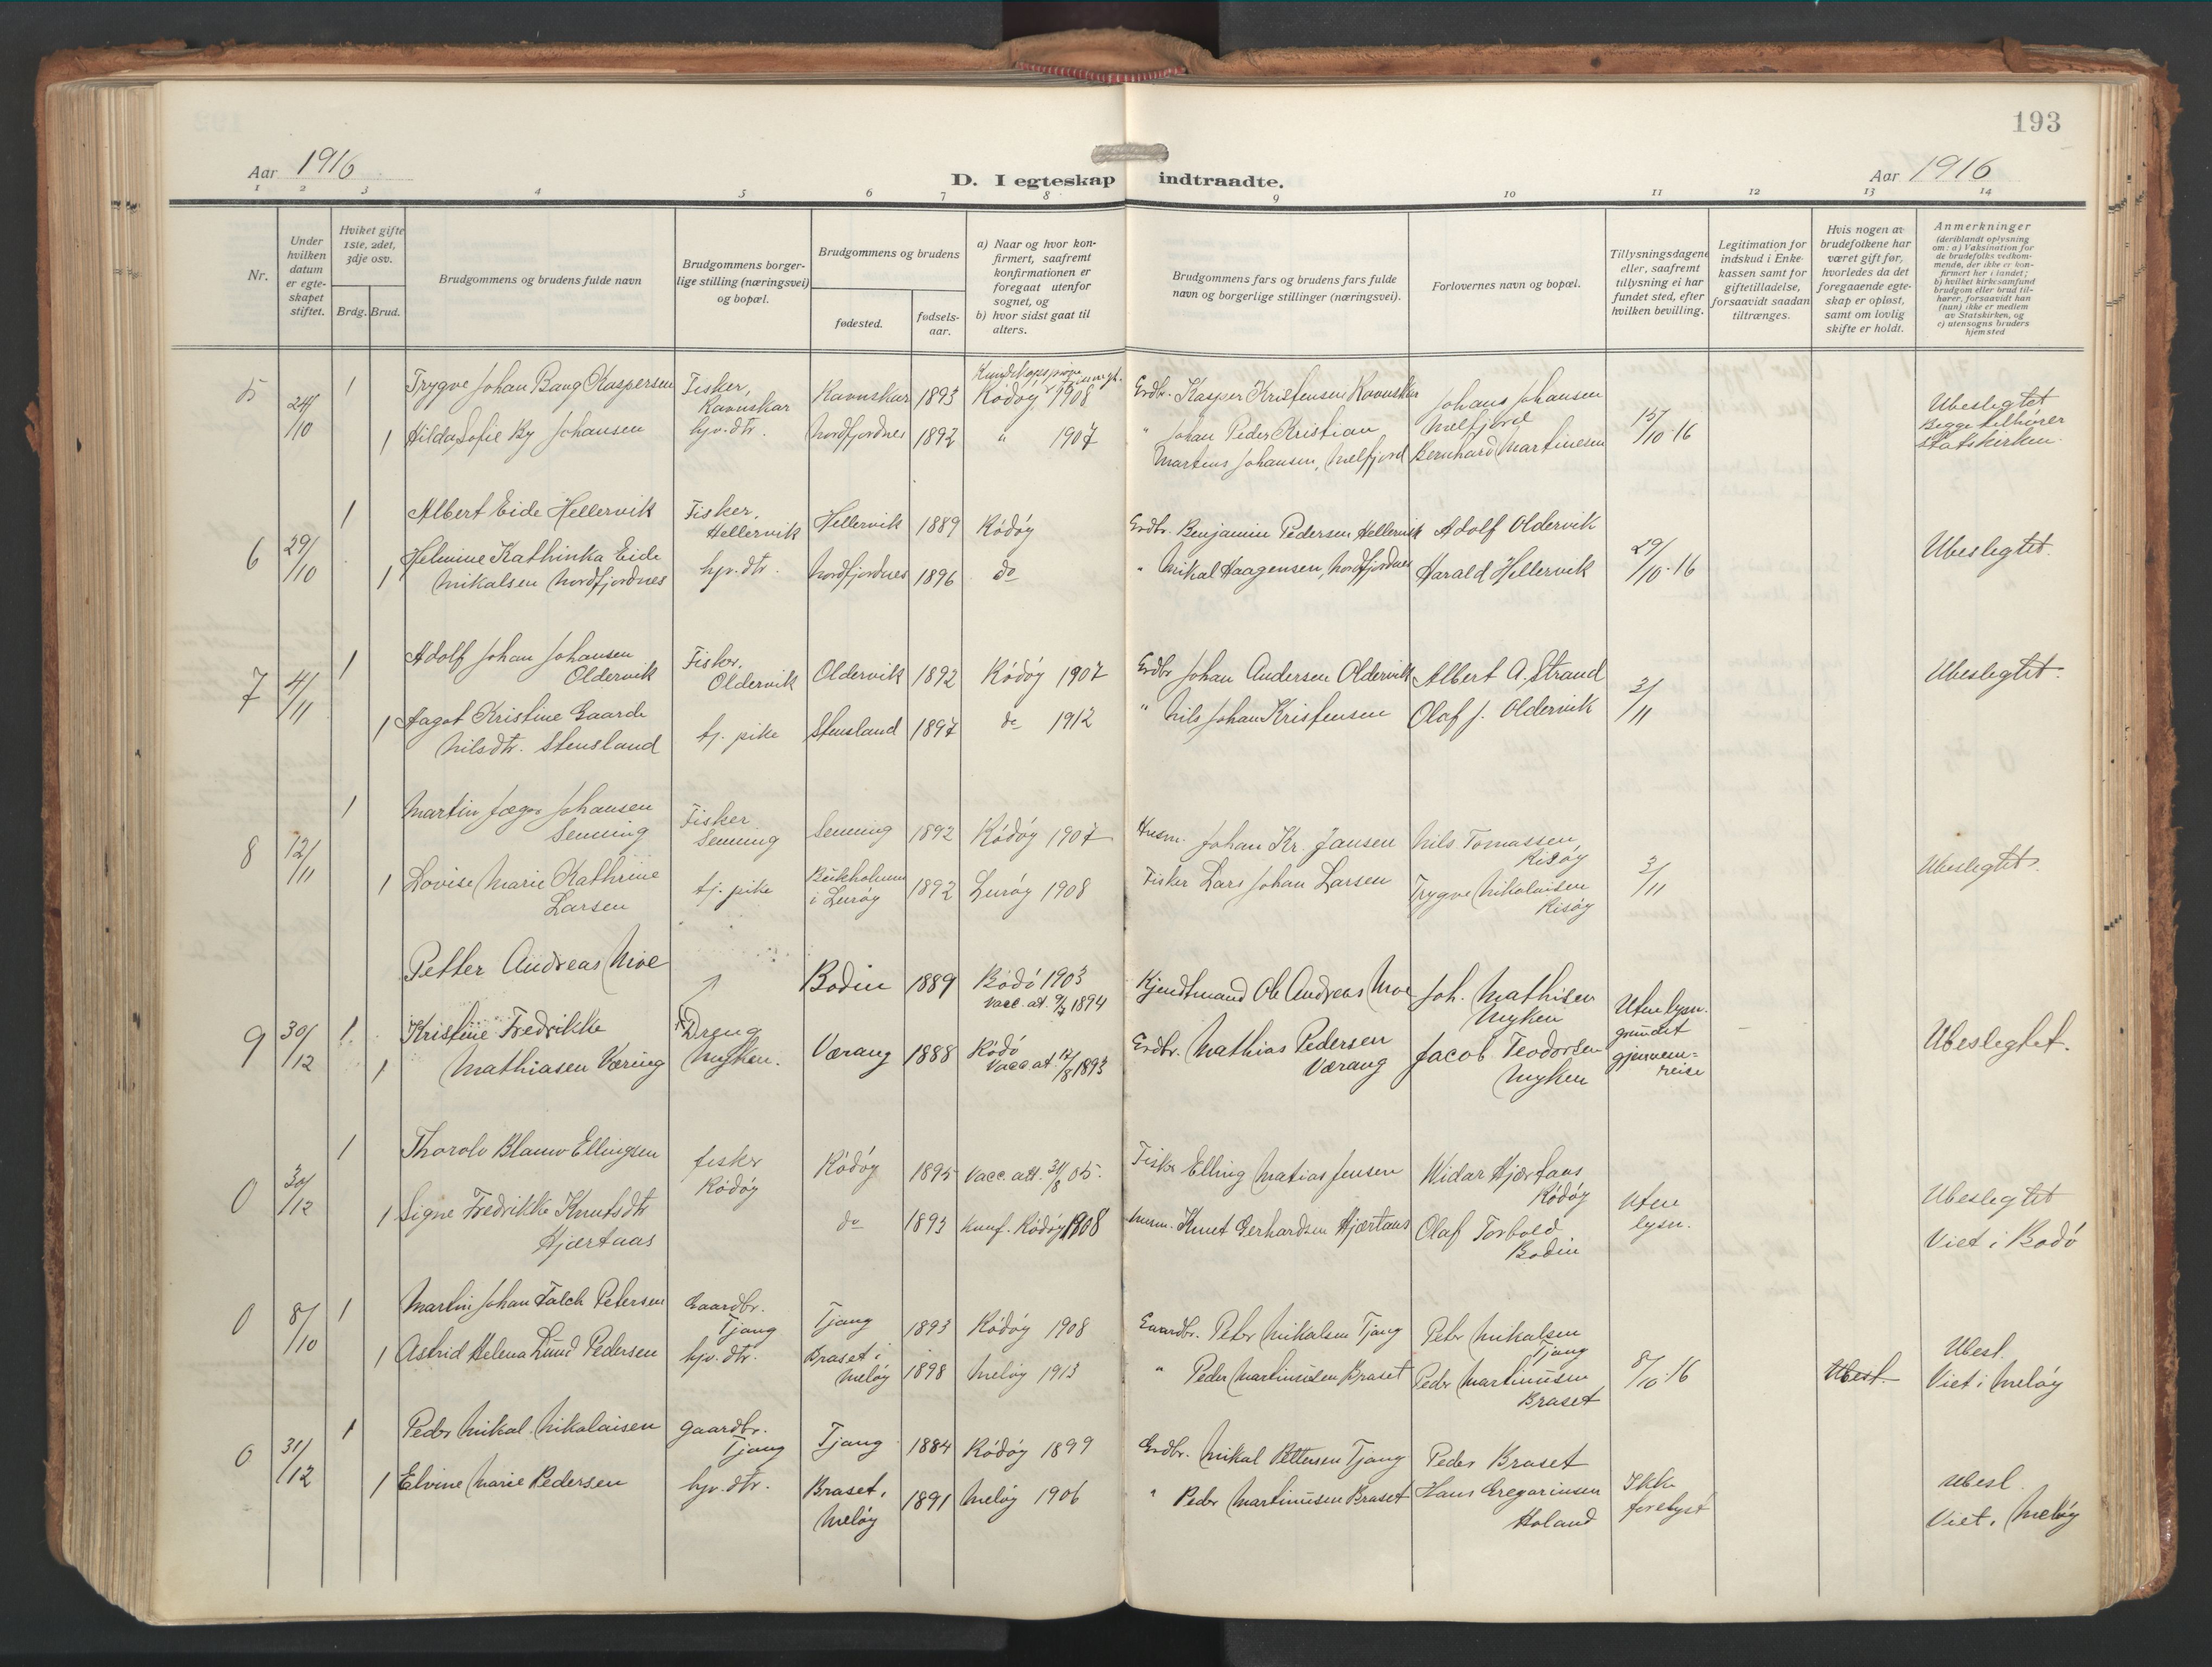 193
Aar 1916
D. I egteskap indtraadte.
Aar 1916
1 2 3 4 5 6 7 8 9 10 11 12 13 14
Nr.
Under hvilken datum er egteskapet stiftet.
Hviket gifte 1ste, 2det, 3dje osv.
Brdg. Brud.
Brudgommens og brudens fulde navn
Brudgommens borgerlige stilling (næringsvei) og bopæl.
Brudgommens og brudens
fødested.
fødselsaar.
a) Naar og hvor konfirmert, saafremt konfirmationen er foregaat utenfor sognet, og
b) hvor sidst gaat til alters.
Brudgommens fars og brudens fars fulde navn og borgerlige stillinger (næringsvei).
Forlovernes navn og bopæl.
Tillysningsdagene eller, saafremt tillysning ei har fundet sted, efter hvilken bevilling.
Legitimation for indskud i Enkekassen samt for giftetilladelse, forsaavidt saadan tiltrænges.
Hvis nogen av brudefolkene har været gift før, hvorledes da det foregaaende egteskap er opløst, samt om lovlig skifte er holdt.
Anmerkninger
(deriblandt oplysning om: a) Vaksination for de brudefolks vedkommende, der ikke er konfirmert her i landet; b) hvilket kirkesamfund brudgom eller brud tilhører, forsaavidt han (hun) ikke er medlem av Statskirken, og c) utensogns bruders hjemsted
5 24/10 1 Trygve Johan Bang Kaspersen Fisker, Ravnskar Ravnskar 1893 Rödöy 1908 Grdbr. Kasper Kristensen Ravnskar Johans Johansen Melfjord 15/10-16 Ubeslegtet Begge tilhører statskirken.
1 Hilda Sofie By Johansen hjv. dtr. Nordfjordnes 1892 " 1907 " Johan Peder Kristian Martins Johansen, Melfjord Bernhard Martinesen
6 29/10 1 Albert Eide Hellervik Fisker, Hellervik Hellervik 1889 Rödöy Grdbr. Benjamin Pedersen Hellervik Adolf Oldervik 29/10-16 Ubeslegtet.
1 Helmine Kathinka Eide Mikalsen Nordfjordnes hjv. dtr. Nordfjordnes 1896 do " Mikal Haagensen, Nordfjordnes Harald Hellervik
7 4/11 1 Adolf Johan Johansen Oldervik Fisker, Oldervik Oldervik 1892 Rödöy 1907 Grdbr Johan Andersen Oldervik Albert A. Strand 3/11 Ubeslegtet.
1 Aagot Kristine Gaarde Nilsdtr. Stensland tj. pike Stensland 1897 do 1912 " Nils Johan Kristensen Olaf J. Oldervik
8 12/11 1 Martin Johansen Senning Fisker Senning Senning 1892 Rödöy 1907 Husm. Johan Kr. Jansen Nils Tomassen, Risöy 3/11 Ubeslegtet.
1 Lovise Marie Kathrine Larsen tj. pike i Luröy 1892 Luröy 1908 Fisker Lars Johan Larsen Trygve Nikolaisen Risöy
9 30/12 1 Petter Andreas Moe Dreng Myken. Bodin 1889 Bodö 1903 vacc. at. 9/3 1894 Kjendtmand Ole Andreas Moe Joh. Mathisen Myken Uten lysn. grundet gjennemreise Ubeslegtet.
1 Kristine Fredrikke Mathiasen Væring Værang 1888 Rödö Vacc at. 12/8 1893 Grdbr. Mathias Pedersen Værang Jacob Teodorsen Myken
0 30/12 1 Thorolv Blamo Ellingsen fisker Rödöy Rödöy 1895 Vacc. att. 31/8 05. Fisker Elling Matias Jensen Widar Hjærtaas Rödöy Uten lysn. Ubeslegtet Viet i Bodö
1 Signe Fredrikke Knutsdtr Hjærtaas do 1893 Kunf. Rödöy 1908 Husm. Knut Gerhardsen Hjærtaas Olaf Torbold Bodin
0 8/10 1 Martin Johan Falch Petersen Gaardbr. Tjang Tjang 1893 Rödöy 1908 Gaardbr. Peter Mikalsen Tjang Peter Mikalsen Tjang 8/10-16 Ubest. Ubesl. Viet i Melöy
1 Astrid Helena Lund Pedersen hjv. dtr. Braset i Melöy 1898 Melöy 1913 " Peder Martinusen Braset Peder Martinusen Braset
0 31/12 1 Peder Mikal Nikolaisen gaardbr. Tjang Tjang 1884 Rödöy 1899 Grdbr. Mikal Pettersen Tjang Peder Braset Ikke forelyst Ubesl. Viet i Melöy
1 Elvine Marie Pedersen hjv. dtr. Braset, Melöy 1891 Melöy 1906 " Peder Martinusen Braset Hans Gregoriusen Holand